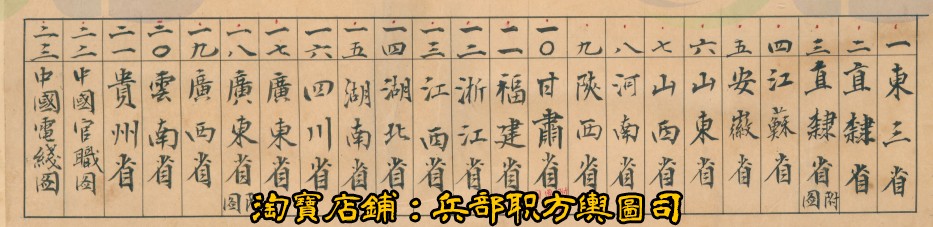 一 東三省
二 直隸省
三 直隸省附圖
四 江蘇省
五 安徽省
六 山東省
七 山西省
八 河南省
九 陝西省
一〇 甘肅省
一一 福建省
一二 浙江省
一三 江西省
一四 湖北省
一五 湖南省
一六 四川省
一七 廣東省
一八 廣東省附圖
一九 廣西省
二〇 雲南省
二一 貴州省
二二 中國官職图
二三 中國電綫图
淘寶店鋪：兵部职方輿圖司